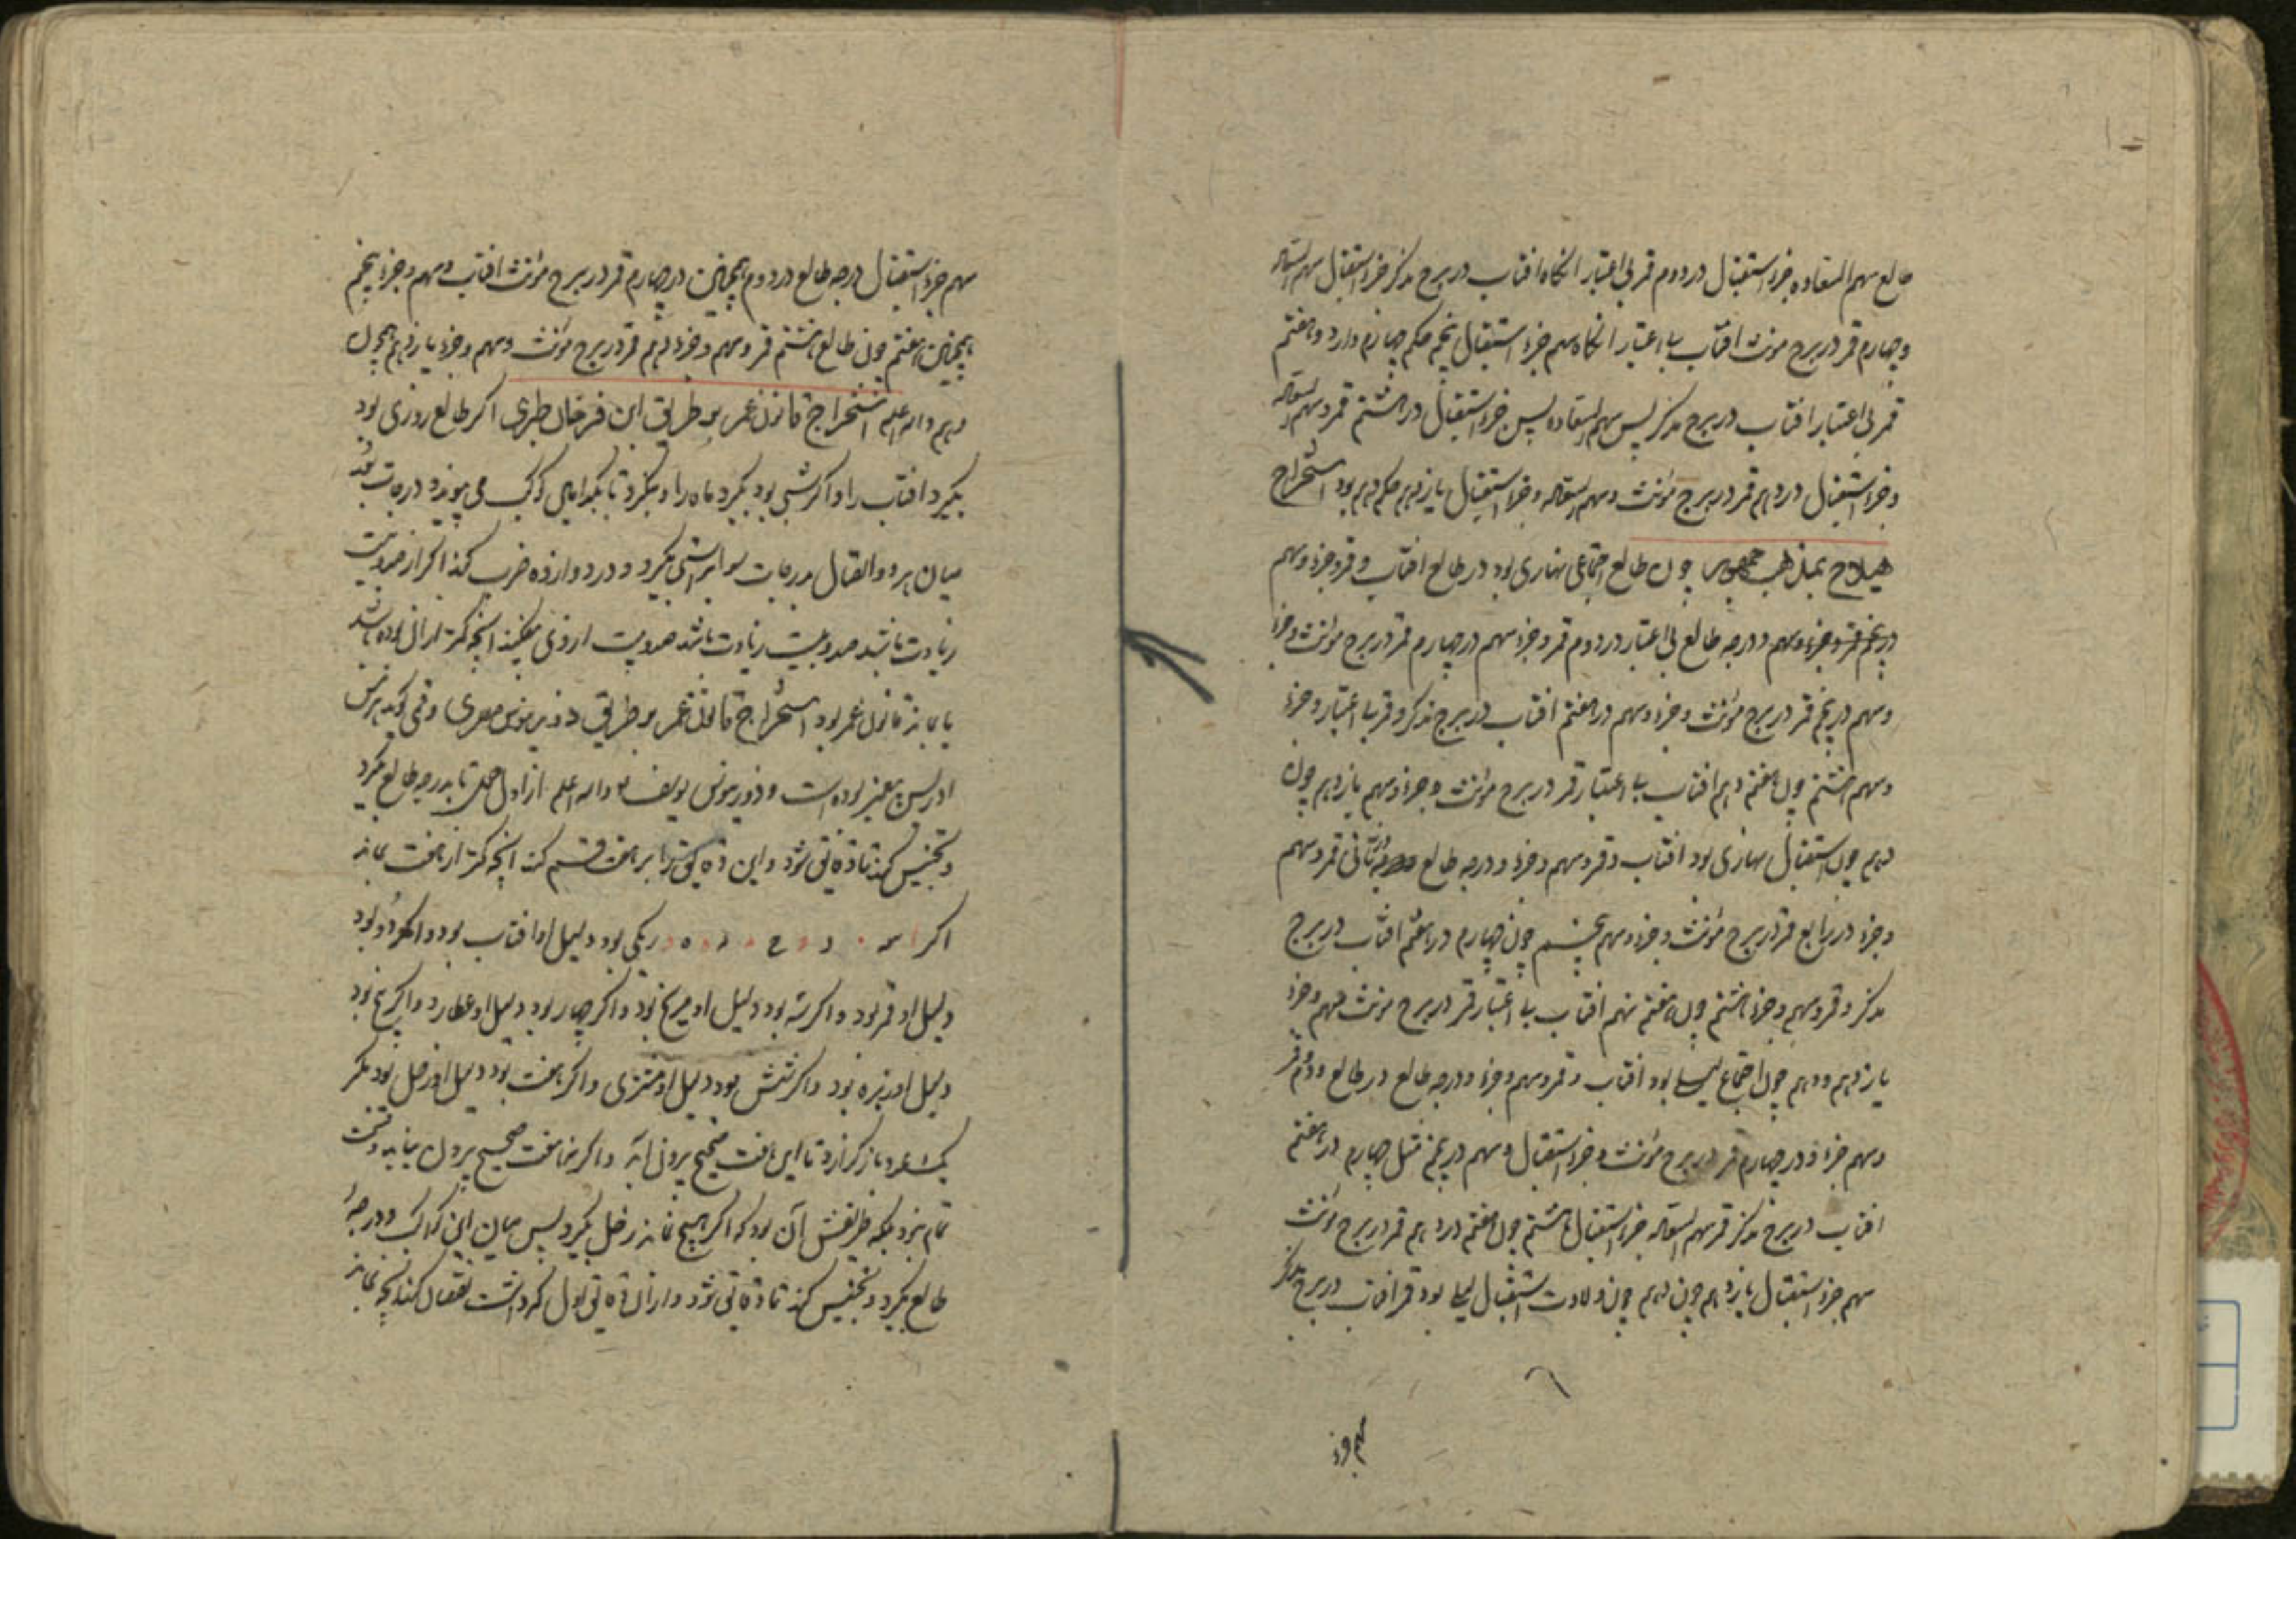 طالع سهم السعاده جزء استقبال در دوم قمر بی اعتبار انکاه افتاب در برج مذکر جزء استقبال سهم السعاده
و چهارم قمر در برج مونث افتاب با اعتبار انکاه سهم جزء استقبال پنجم حکم چهارم دارد و هفتم
قمر بی اعتبار افتاب در برج مذکر پس سهم السعاده پس جزء استقبال در هشتم قمر و سهم السعاده
و جزء استقبال در دهم قمر در برج مونث و سهم السعاده و جزء استقبال یازدهم حکم دهم بود استخراج
هیلاج بمذهب چون طالع اجتماعی نهاری بود در طالع افتاب و قمر و جزء و سهم
در پنجم قمر و جزء و سهم و درجه طالع بی اعتبار در دوم قمر و جزء و سهم در چهارم قمر در برج مونث و جزء
و سهم در پنجم قمر در برج مونث و جزء و سهم در هفتم افتاب در برج مذکر و قمر با اعتبار و جزء
و سهم هشتم چون هفتم دهم افتاب با اعتبار قمر در برج مونث و جزء و سهم یازدهم چون
دهم چون استقبال نهاری بود افتاب و قمر و سهم و جزء و درجه طالع در ثانی قمر و سهم
و جزء در رابع قمر در برج مونث و جزء و سهم پنجم چون چهارم در هفتم افتاب در برج
مذکر و قمر و سهم و جزء هشتم چون هفتم نهم افتاب با اعتبار قمر در برج مونث سهم و جزء
یازدهم و دهم چون اجتماع لیلی بود افتاب و قمر و سهم و جزء و درجه طالع در طالع و دوم قمر
و سهم جزء و در چهارم قمر در برج مونث و جزء استقبال و سهم در پنجم مثل چهارم در هفتم
افتاب در برج مذکر قمر سهم السعاده جزء استقبال هشتم چون هفتم در دهم قمر در برج مونث
سهم جزء استقبال یازدهم چون دهم چون ولادت استقبال لیلی بود قمر افتاب در برج مذکر
سهم جزء استقبال درجه طالع در دوم همچنین در چهارم قمر در برج مونث افتاب و سهم و جزء پنجم
همچنین هفتم چون طالع هشتم قمر و سهم و جزء دهم قمر در برج مونث و سهم و جزء یازدهم چون
دهم والله اعلم استخراج قانون عمر بر طریق ابن فرخان طبری اگر طالع روزی بود
بگیرد افتاب را و اگر شبی بود بگیرد ماه را و بنگرد تا بکدامین کوکب می پیوندد درجات بعد
میان هر دو اتصال بدرجات سوا بگیرد و در دوازده ضرب کند اگر از صد و بیست
زیادت باشد صد و بیست زیادت باشد صد و بیست از وی بیفکند انچه کمتر از ان بوده باشد
یا بماند قانون عمر بود استخراج قانون عمر بر طریق مصری وقتی گوید هرمس
ادریس پیغمبر بوده است و والله اعلم از اول حمل تا بدرجه طالع بگیرد
و تجنیس کند تا دقایق شود و این دقایق را بر هفت قسم کند انچه کمتر از هفت بماند
اگر یکی بود دلیل او افتاب بود و اگر دو بود
دلیل او قمر بود و اگر سه بود دلیل او مریخ بود و اگر چهار بود دلیل او عطارد و اگر پنج بود
دلیل او زهره بود و اگر شش بود دلیل او مشتری و اگر هفت بود دلیل او زحل بود مگر
تا این هفت صحیح بیرون آید و اگر هفت صحیح بیرون نیاید
بلکه طریقش آن بود که اگر هیچ نماند زحل بگیرد پس میان این کواکب و درجه
طالع بگیرد و تجنیس کند تا دقایق شود و از ان دقایق اول که داشت نقصان کند انچه بماند